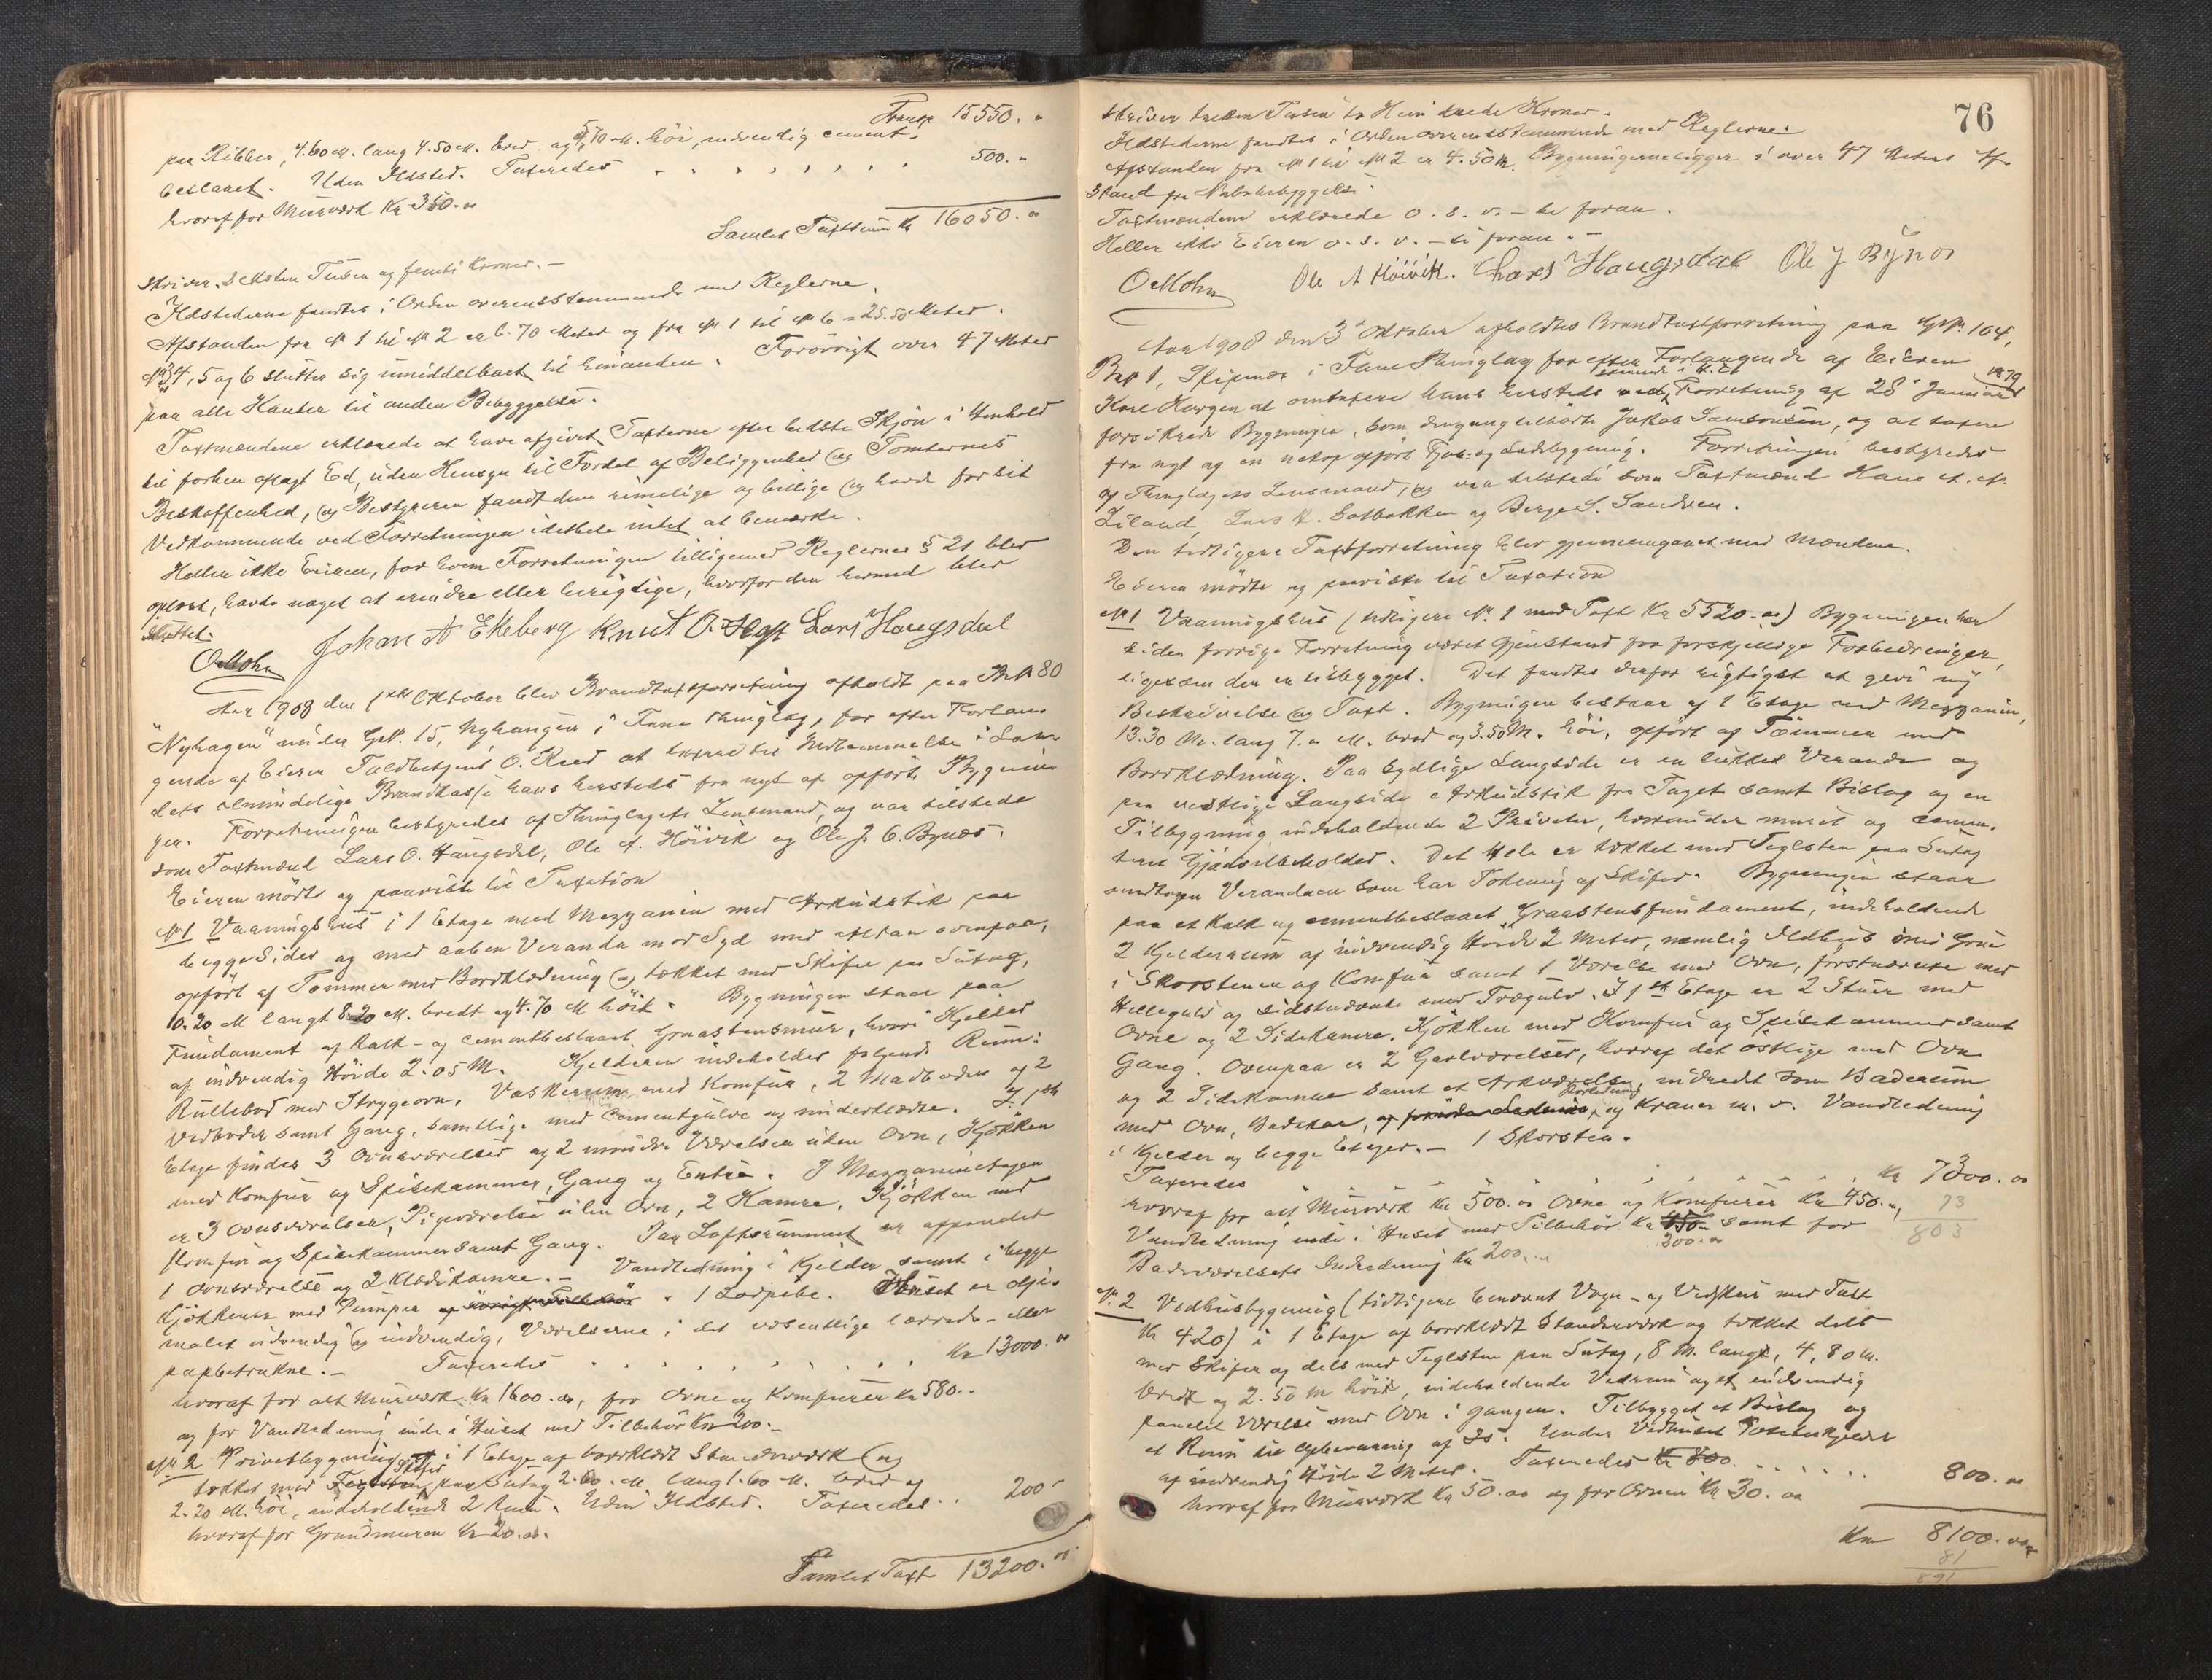 Transp 15550. "
paa Ribber, 4.60 M. lang 4.50 M. bred og 5,70 M. höi, indvendig cement-
beslaaet. Uden Ildsted. Taxeredes . , , , , , 500. "
hvoraf for Murværk Kr 350. oo
Samlet Taxtsum Kr 16050. oo
skriver Seksten Tusen og femti Kroner. –
Ildstederne fandtes i Orden overensstemmende med Reglerne.
Afstanden fra № 1 til № 2 er 6.70 Meter og fra № 1 til № 6 = 25.50 Meter.
№ 3, 4, 5 og 6 slutter sig umiddelbart til hinanden. Forövrigt over 47 Meter
paa alle Kanter til anden Bebyggelse.
Taxtmændene erklærede at have afgivet Taxterne efter bedste Skjön i Henhold
til forhen aflagt Ed, uden Hensyn til Fordel af Beliggenhed og Tomternes
Beskaffenhed, og Bestyreren fandt dem rimelige og billige og havde for sit
Vedkommende ved Forretningen idethele intet at bemærke.
Heller ikke Eieren, for hvem Forretningen tilligemed Reglernes § 21 blev
oplæst, havde noget at erindre eller berigtige, hvorfor den hermed blev
sluttet.
OMohn Johan A Ekeberg Knut O. Lars Haugsdal
Aar 1908 den 1ste Oktober blev Brandtaxtforretning afholdt paa Br.№ 80
"Nyhagen" under G.№. 15, Nyhaugen i Fane Thinglag, for efter Forlan-
gende af Eieren Toldbetjent O. Reed at taxere til Indlemmelse i Lan-
dets almindelige Brandkasse hans hersteds fra nyt af opförte Bygnin-
ger. Forretningen bestyredes af Thinglagets Lensmand, og var tilstede
som Taxtmænd Lars O. Haugsdal, Ole A. Höivik og Ole J. C. Bynæs.
Eieren mödte og paaviste til Taxation
№ 1 Vaaningshus i 1 Etage med Mezzanin med Arkudstik paa
begge Sider og med aaben Veranda mod Syd med altan ovenpaa,
opfört af Tömmer med Bordklædning og tækket med Skifer paa Sutag,
10.20 M langt 8.20 M. bredt og 4.70 M höit. Bygningen staar paa
Fundament af Kalk- og cementbeslaaet Graastensmur, hvori Kjelder
af indvendig Höide 2.05 M. Kjelderen indeholder fölgende Rum:
Rullebod med Strygeovn, Vaskerum med Komfur, 2 Madboder og 2
Vedboder samt Gang, samtlige med Cementgulve og underklædte. I 1ste
Etage findes 3 Ovnsværelser og 2 mindre Værelser uden Ovn, Kjökken
med Komfur og Spisekammer, Gang og Entré. I Mezzaninetagen
er 3 ovnsværelser, Pigeværelse uden Ovn, 2 Kamre, Kjökken med
Komfur og Spisekammer samt Gang. Paa Loftsrummet er afpanelet
1 ovnsværelse og 2 Klædekamre. – Vandledning i Kjelder samt i begge
Kjökkener med Pumper . 1 Lodpibe. Huset er olje-
malet udvendig og indvendig, Værelserne i det væsentlige lærreds- eller
papbetrukne. – Taxeredes . . . . . . . . Kr 13000. oo
hvoraf for alt Murværk Kr 1600. oo, for Ovne og Komfurer Kr 580..
og for Vandledning inde i Huset med Tilbehör Kr 200. –
№ 2 Privetbygning i 1 Etage af bordklædt Stænderværk og
tækket med Skifer paa Sutag 2.60. M. lang 1.60 M. bred og
2.20 M. höi, indeholdende 2 Rum. Uden Ildsted. Taxeredes.. 200 –
hvoraf for Grundmuren Kr 20. oo.
Samlet Taxt 13200. oo
76
skriver tretten Tusen to Hundrede Kroner.
Ildstederne fandtes i Orden overensstemmende med Reglerne.
Afstanden fra № 1 til № 2 er 4.50 M. Bygningerne ligger i over 47 Meters Af-
stand fra Nabobebyggelse.
Taxtmændene erklærede o. s. v. – se foran.
Heller ikke Eieren o. s. v. – se foran. –
OMohn Ole A Höivik. Lars Haugsdal Ole J Bynæs
Aar 1908 den 3die Oktober afholdtes Brandtaxtforretning paa G.№. 104,
Br.№ 1, i Fane Thinglag for efter Forlangende af Eieren
Karl Horgen at omtaxere hans hersteds ved Forretning af 28de Januar 1879
forsikrede Bygninger, som dengang tilhörte Jakob Samsonsen, og at taxere
fra nyt og en netop opfört Fjös- og Ladebygning. Forretningen bestyredes
af Thinglagets Lensmand, og var tilstede som Taxtmænd Hans
Liland, Lars H. Solbakken og Berge S. Sandven.
Den tidligere Taxtforretning blev gjennemgaaet med Mændene.
Eieren mödte og paaviste til Taxation
№ 1 Vaaningshus (tidligere № 1 med Taxt Kr 5520. oo) Bygningen har
siden forrige Forretning været Gjenstand for forskjellige Forbedringer,
ligesom den er tilbygget. Det fandtes derfor rigtigst at give ny
Beskrivelse og Taxt. Bygningen bestaar af 1 Etage med Mezzanin,
13.30 M. lang 7. " M. bred og 3.50 M. höi, opfört af Tömmer med
Bordklædning. Paa sydlige Langside er en lukket Veranda og
paa vestlige Langside Arkudstik fra Taget samt Bislag og en
Tilbygning indeholdende 2 Priveter, herunder muret og cemen-
teret Gjödselbeholder. Det Hele er tækket med Teglsten paa Sutag
undtagen Verandaen som har Tækning af Skifer. Bygningen staar
paa et Kalk og cementbeslaaet Graastensfundament, indeholdende
2 Kjelderrum af indvendig Höide 2 Meter, nemlig Ildhus med Grue
i Skorstenen og Komfur samt 1 Værelse med Ovn, förstnævnte med
Hellegulv og sidstnævnte med Trægulv. I 1ste Etage er 2 Stuer med
Ovne og 2 Sidekamre, Kjökken med Komfur og Spisekammer samt
Gang. Ovenpaa er 2 Gavlværelser, hvoraf det östlige med Ovn
og 2 Sidekamre samt et Arkværelse, indredet som Baderum
med Ovn, Badekar, og Kraner m. v. Vandledning
i Kjelder og begge Etager. – 1 Skorsten.
Taxeredes . . . . . . Kr 7300. oo
hvoraf for alt Murværk Kr 500. oo Ovne og Komfurer Kr 450. ", 73
Vandledning inde i Huset med Tilbehör Kr 300. oo samt for 803
Badeværelsets Indredning Kr 200. "
№. 2 Vedhusbygning (tidligere benævnt Vogn- og Vedskur med Taxt
Kr 420) i 1 Etage af bordklædt Stænderværk og tækket dels
med Skifer og dels med Teglsten paa Sutag, 8 M. langt, 4,80 M.
bredt og 2.50 M höit, indeholdende Vedrum og et indvendig
panelet Værelse med Ovn i gangen. Tilbygget et Bislag og
et Rum til Opbevaring af Is. Under Vedhuset Potetkjelder
af indvendig Höide 2 Meter. Taxeredes Kr 800. . . . . . 800. oo
hvoraf for Murværk Kr 50. oo og for Ovnen Kr 30. oo
Kr 8100. oo
81
891